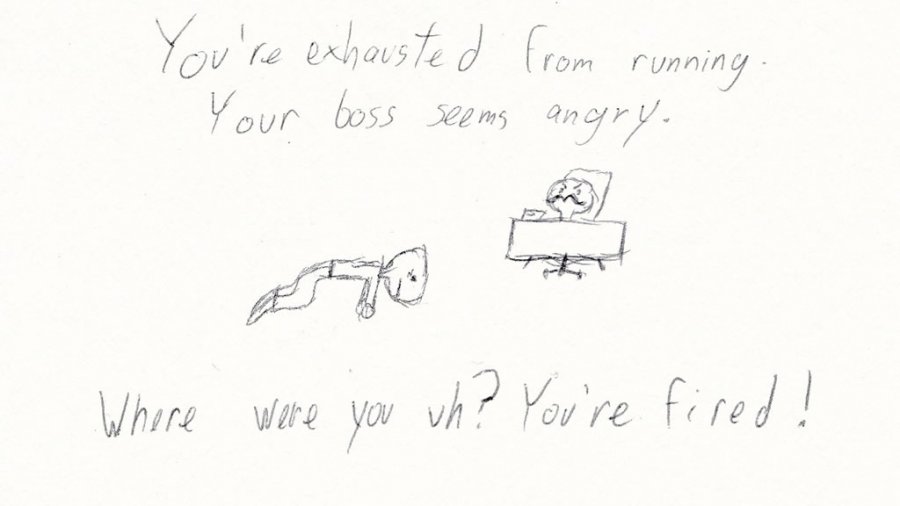 You're exhausted from running.
Your boss seems angry.
Where were you uh? You're fired!